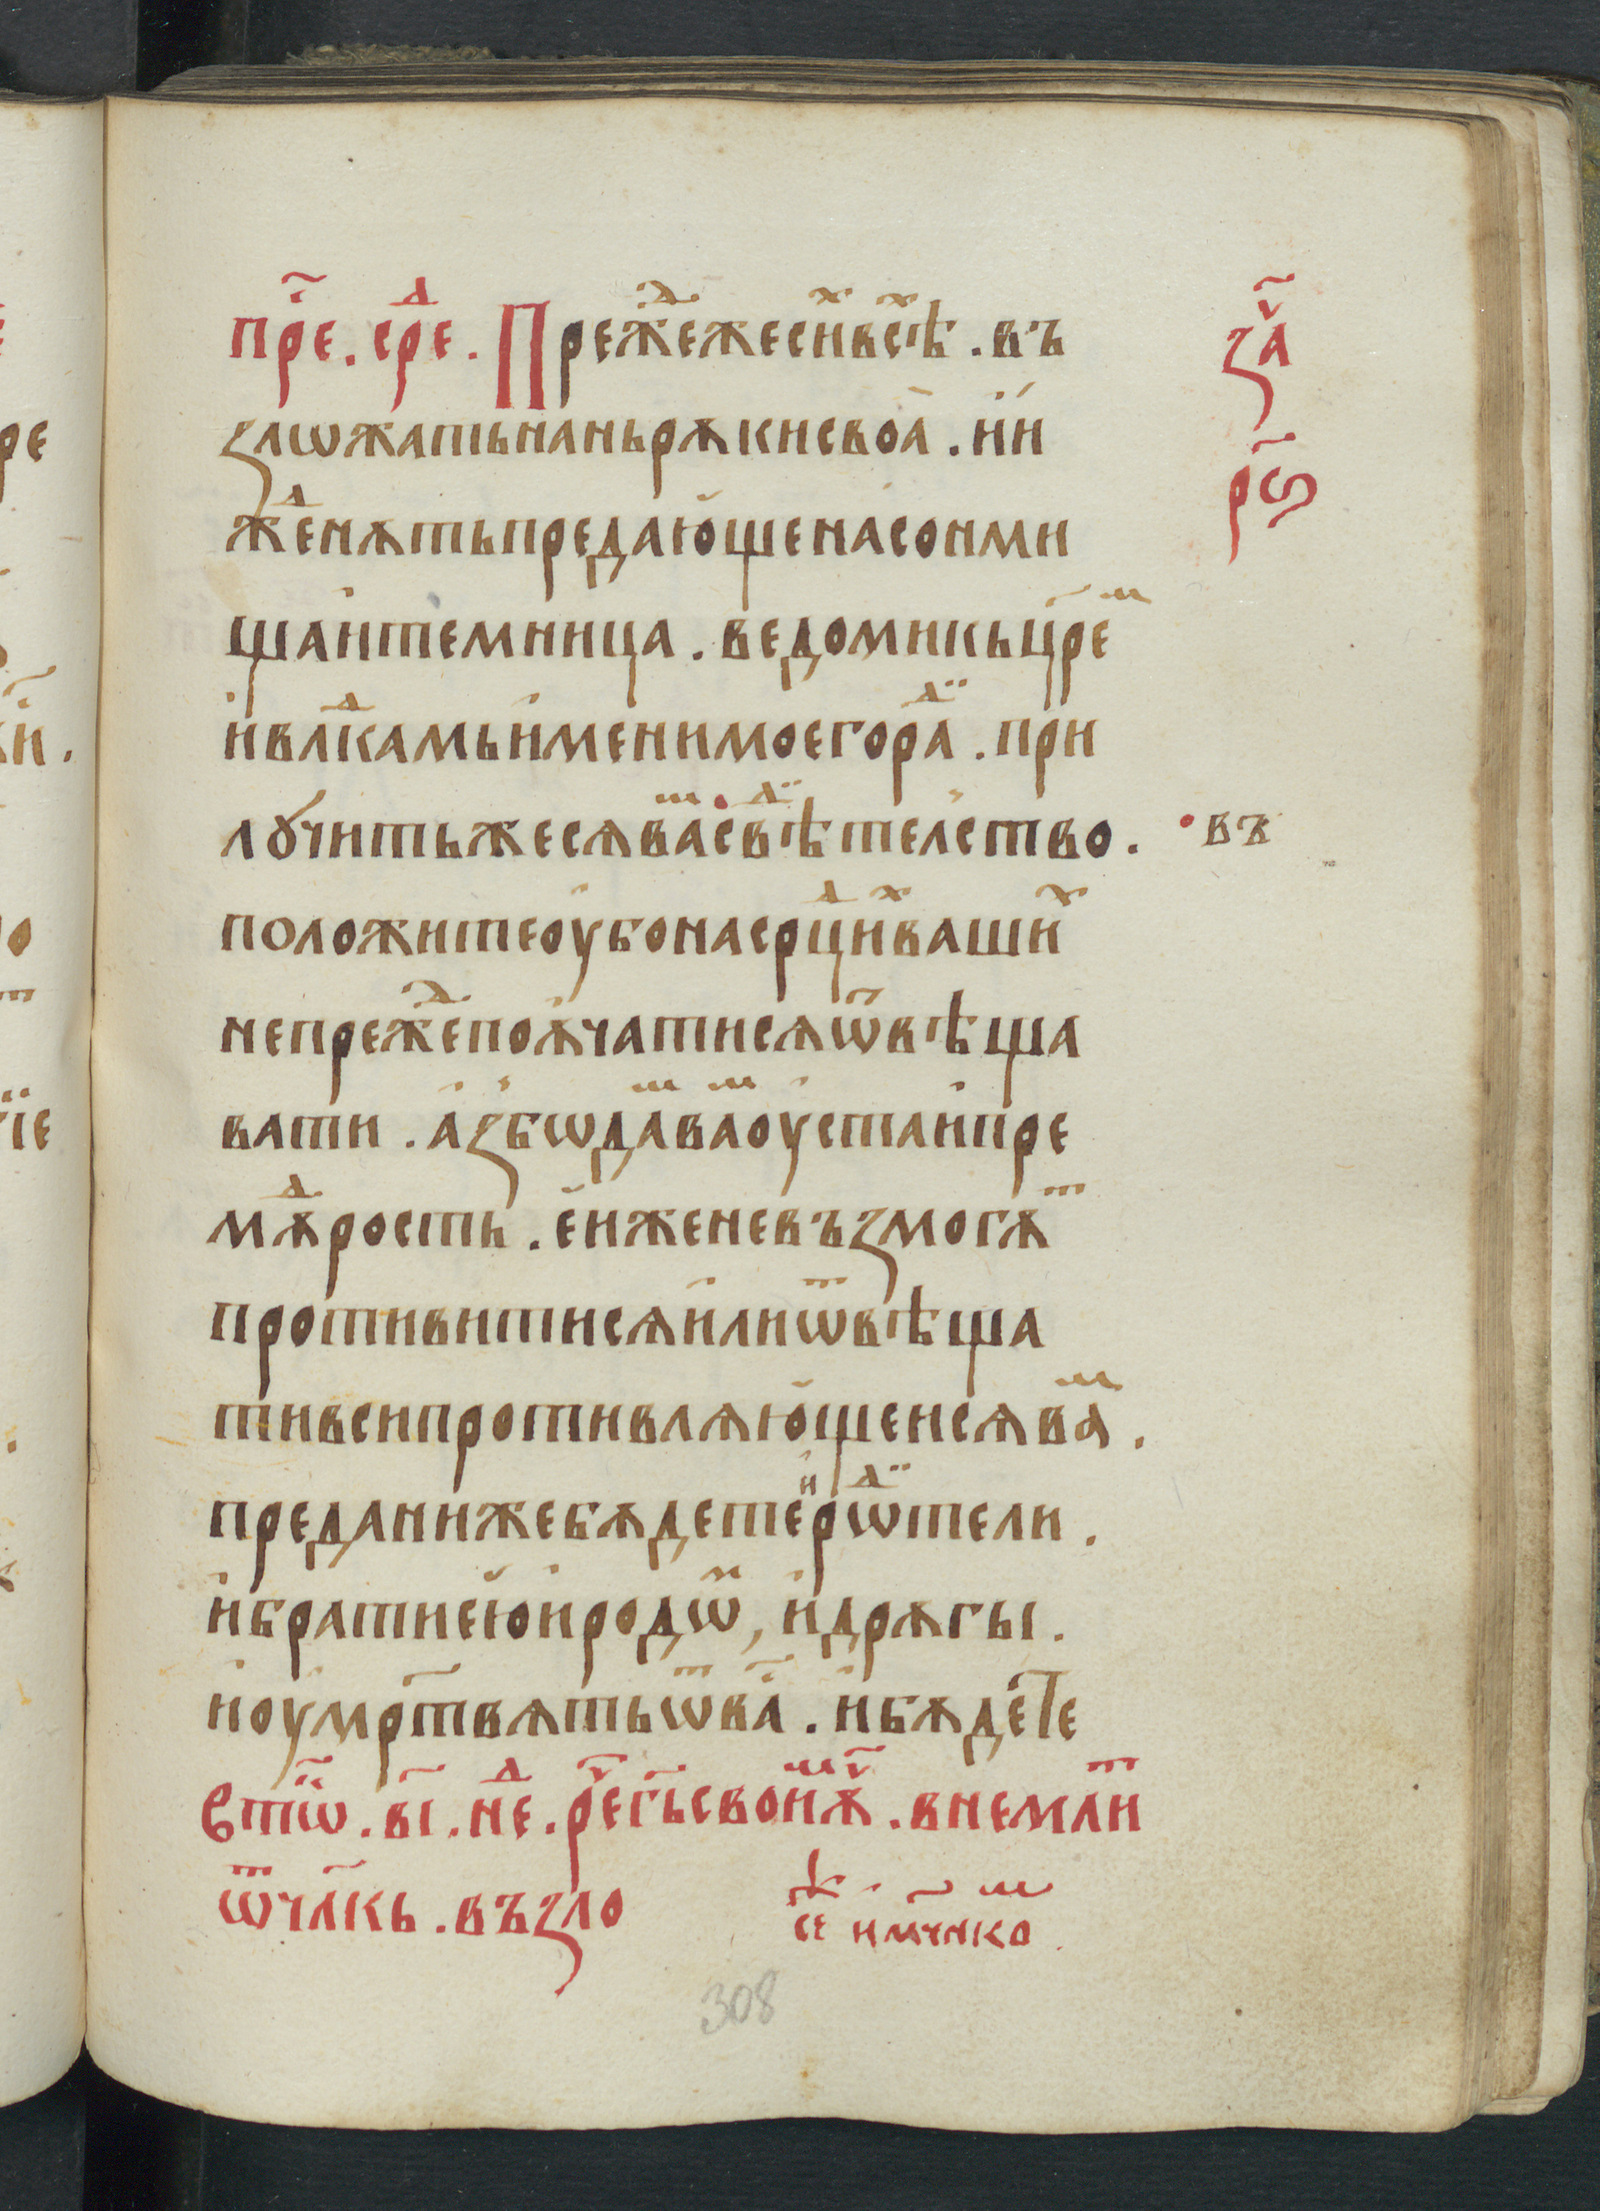 пр҃е. срⷣе. Прежⷣежесиⷯвсⷯѣ. въ
ꙁлѡжатьнаньрѫкисвоа̀. ии
жⷣенѫтьпредающенасонми
щаитемница. ведомикьцр҃еⷨ
ивлⷣкамьименимоегораⷣ. при
лꙋчитьжесѧваⷨсвⷣѣтелство.
въ
положитеоубонасрⷣциⷯвашиⷯ
непрежⷣепоѫчатисѧѿвѣща
вати. аꙁбѡдаⷨваⷨоустаипре
мѫⷣрость. еиженевъꙁмогѫⷮ
противитисѧилиѿвѣща
тивсипротивлѧющеисѧваⷨ.
преданижебѫдетеиⷬ҇ѡⷣтели.
ибратиеюиродѡⷨ, идрѫгы.
иоумр҃твѧтьѿва҃. ибѫдете
Єт҃ѡ. в҃і. неⷣ. рег҃ьсвоиⷨѫ҃. внемлиⷮ
ѿчл҃кь. въꙁло
се имч҃нкоⷨ
ꙁⷱ҇а
р҃ѕ
308